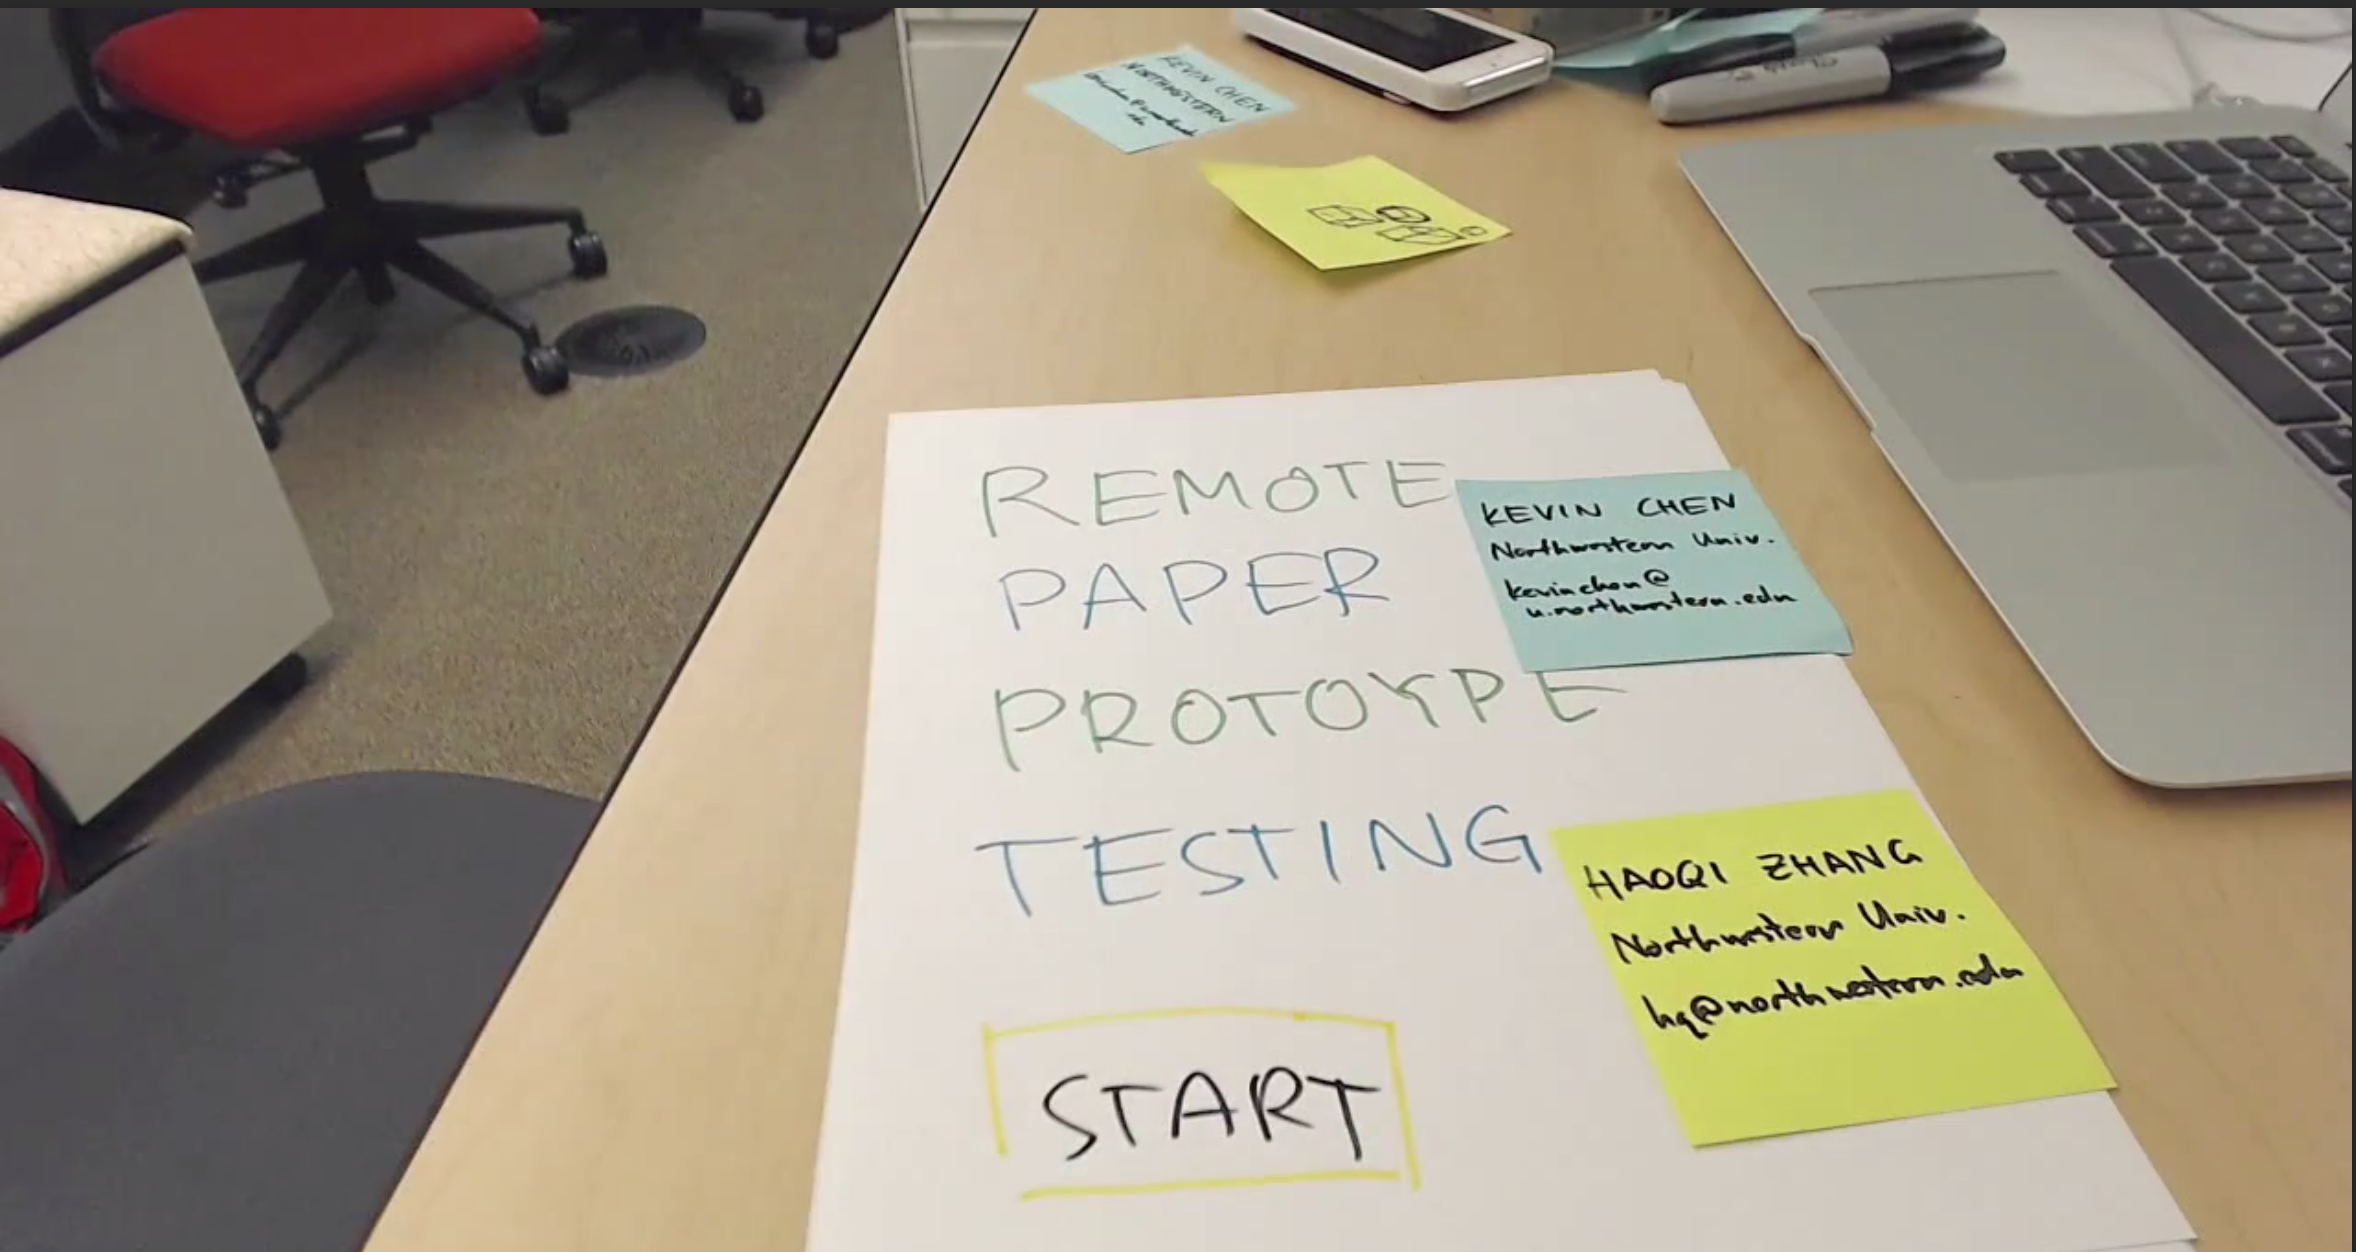 KEVIN CHEN
NORTHWESTERN
REMOTE
PAPER
PROTOYPE
TESTING
START
KEVIN CHEN
Northwestern Univ.
kevinchen@
u.northwestern.edu
HAOQI ZHANG
Northwestern Univ.
hq@northwestern.edu